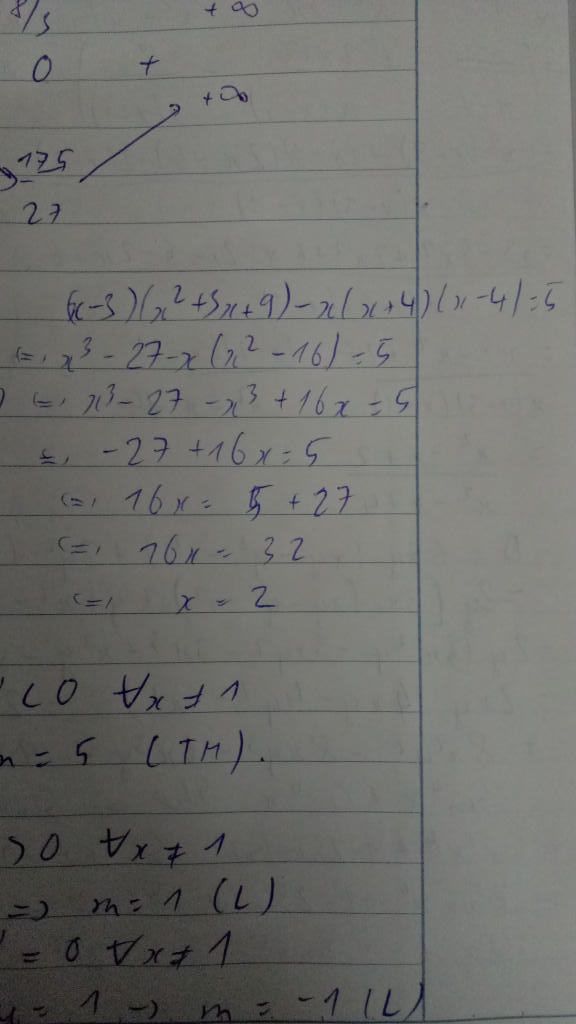 8/3 +∞
0 +
+∞
175
27
(x-3)(x²+3x+9)-x(x+4)(x-4)=5
(=) x³-27-x(x²-16)=5
(=) x³-27-x³+16x=5
(=) -27+16x=5
(=) 16x = 5+27
(=) 16x = 32
(=) x = 2
<0 ∀x≠1
= 5 (TM).
>0 ∀x≠1
=> m=1 (L)
=0 ∀x≠1
= 1 -> m = -1 (L)